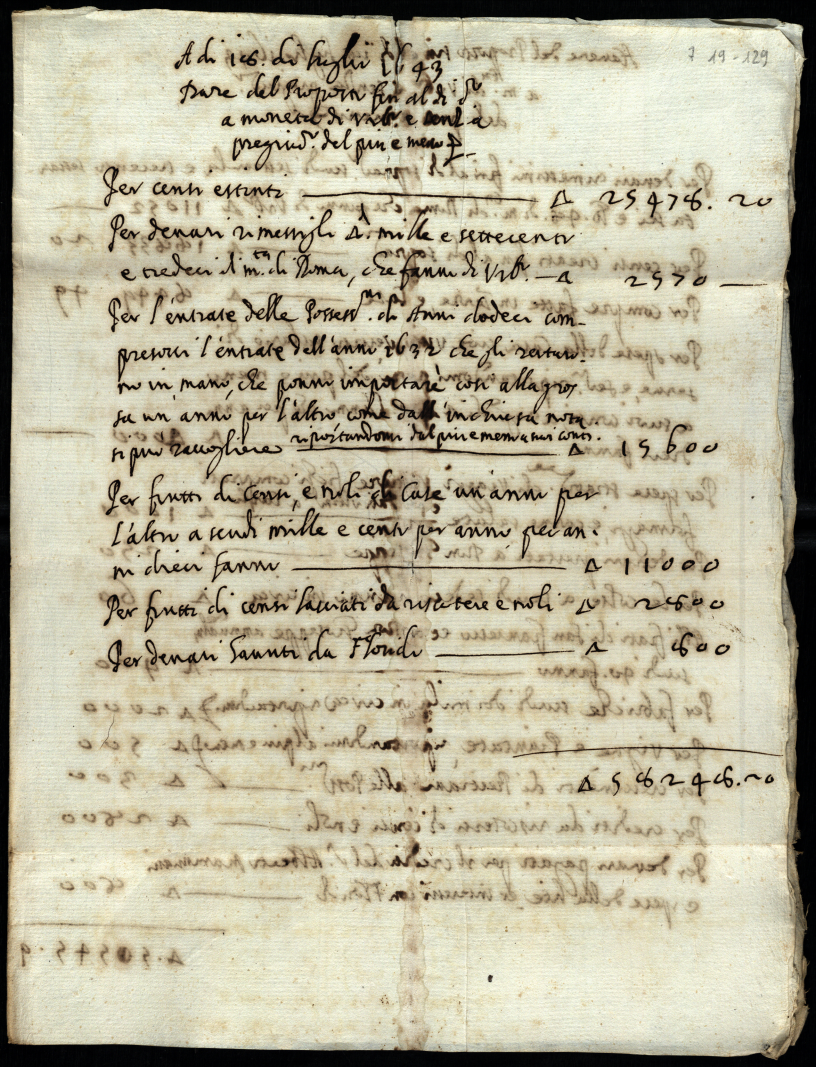 7 19-129
A di 16. di luglio 1643
Dare del Proposto fin al dì d.º
a moneta di Urb.º e senza
pregiud.º del più e meno
Per censi estinti Δ 25478. 20
Per denari rimessigli Δ. mille e settecenti
e tredeci di m.ta di Roma, che fanno di Urb.º Δ 2570
Per l'entrate delle Possess.ni di Anni dodeci com-
presovi l'entrate dell'anno 1632 che gli restaro-
no in mano, che ponno importare così alla gros
sa un anno per l'altro come dall'inchiesa nota
si può raccogliere riportandomi dal più e meno a suoi conti. Δ 15600
Per frutti di censi, e noli di Case un'anno per
l'altro a scudi mille e cento per anno per an-
ni dieci fanno Δ 11000
Per frutti di censi lasciati da riscotere e noli Δ 2600
Per denari havuti da Floridi Δ 600
Δ 58248. 20